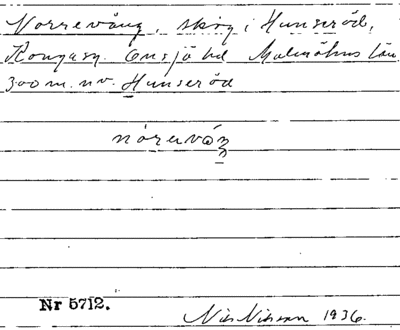 Norrevång, skog i Hunseröd,
Kongasn. Onsjö hd Malmöhus län
300 m. nv. Hunseröd
nórevåŋ
Nr 5712.
Nils Nilsson 1936.